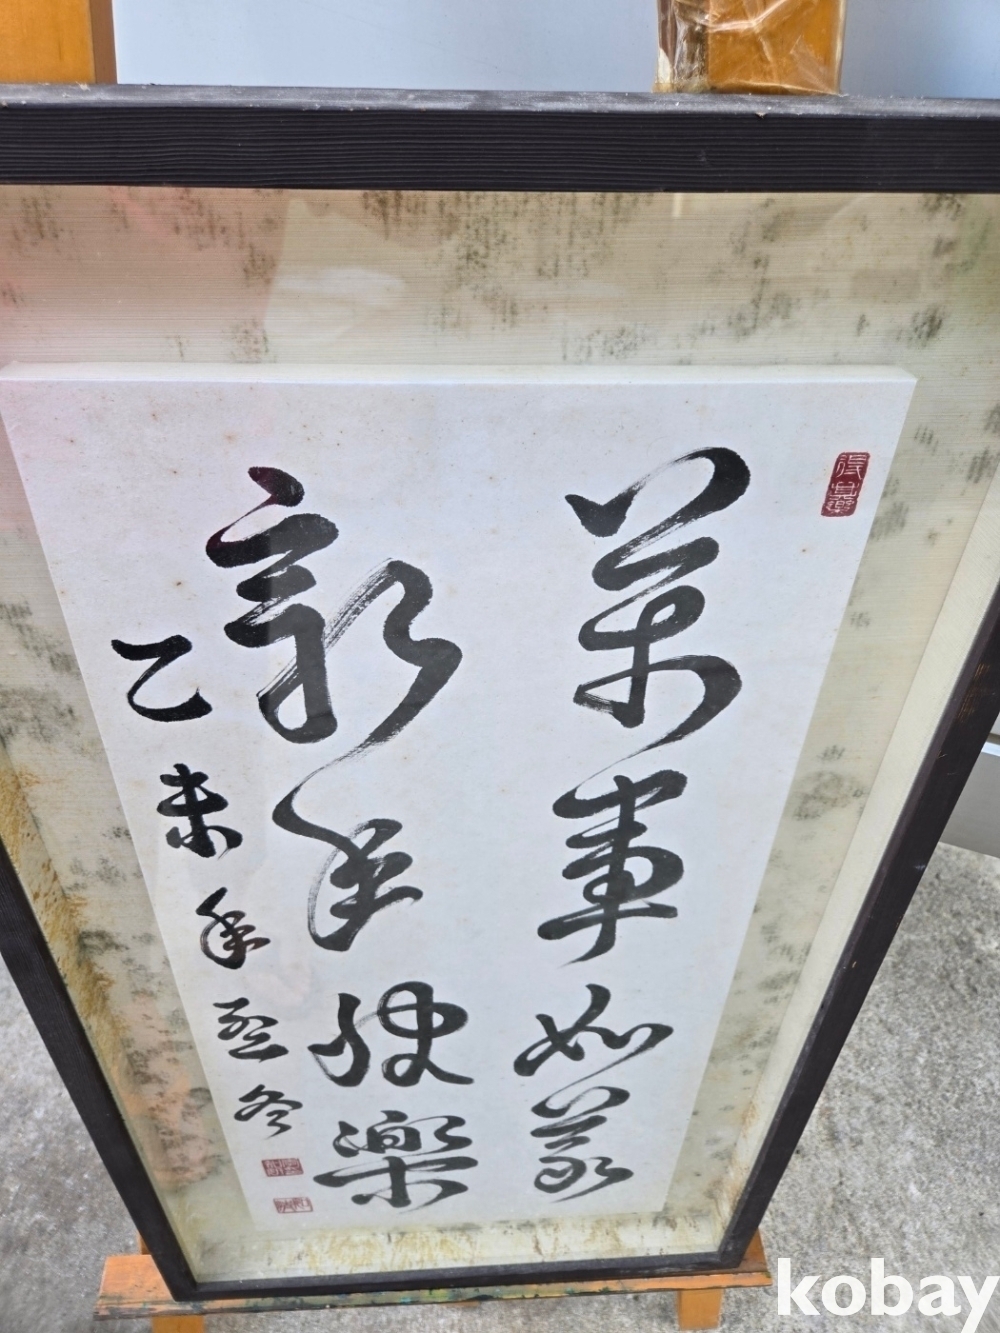 萬事如意
新年快樂
乙未年冬
kobay